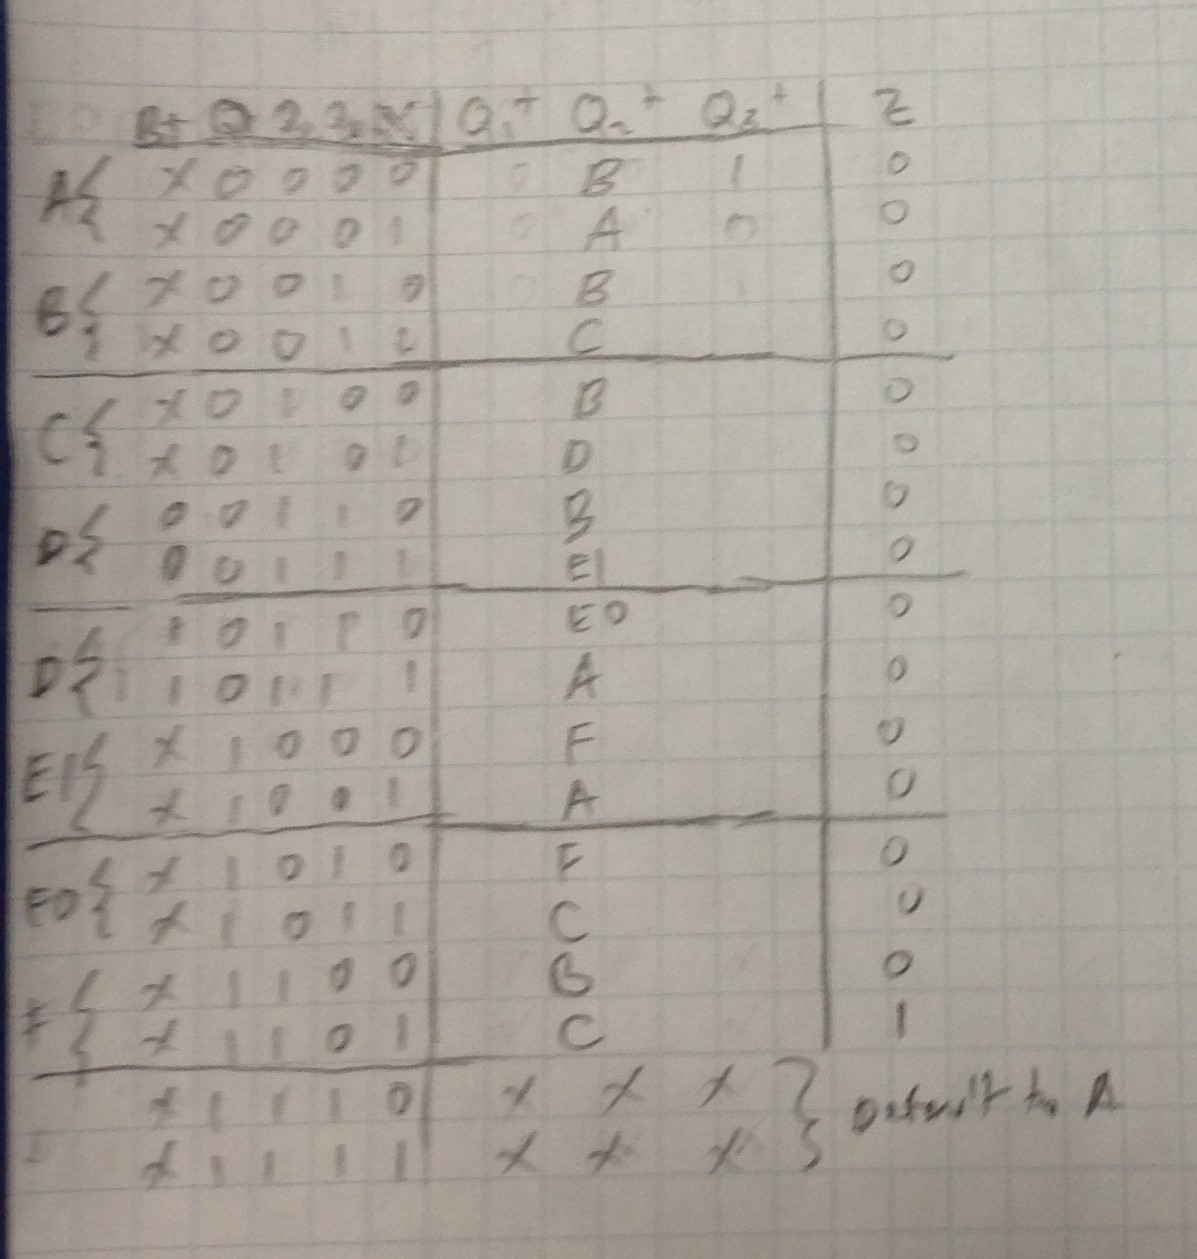 Bt Q 2, 2 X Q1+ Q2+ Q3+ Z
A{ X 0 0 0 0 0 B 1 0
X 0 0 0 1 0 A 0 0
B{ X 0 0 1 0 0 B 1 0
X 0 0 1 1 C 0
C{ X 0 1 0 0 B 0
X 0 1 0 1 D 0
D{ 0 0 1 1 0 B 0
0 0 1 1 1 E1 0
D{ 1 0 1 1 0 E0 0
1 0 1 1 1 A 0
E1{ X 1 0 0 0 F 0
X 1 0 0 1 A 0
E0{ X 1 0 1 0 F 0
X 1 0 1 1 C 0
F{ X 1 1 0 0 B 0
X 1 1 0 1 C 1
X 1 1 1 0 X X X } Default to A
X 1 1 1 1 X X X